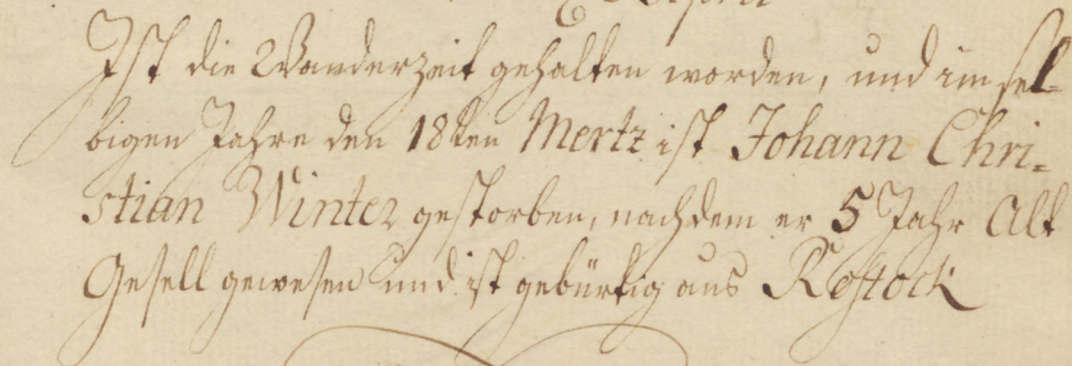 Ist die Wanderzeit gehalten worden, und im sel-
bigen Jahre den 18ten Mertz ist Johann Chri-
stian Winter gestorben, nachdem er 5 Jahr Alt
Gesell gewesen und ist gebürtig aus Rostock